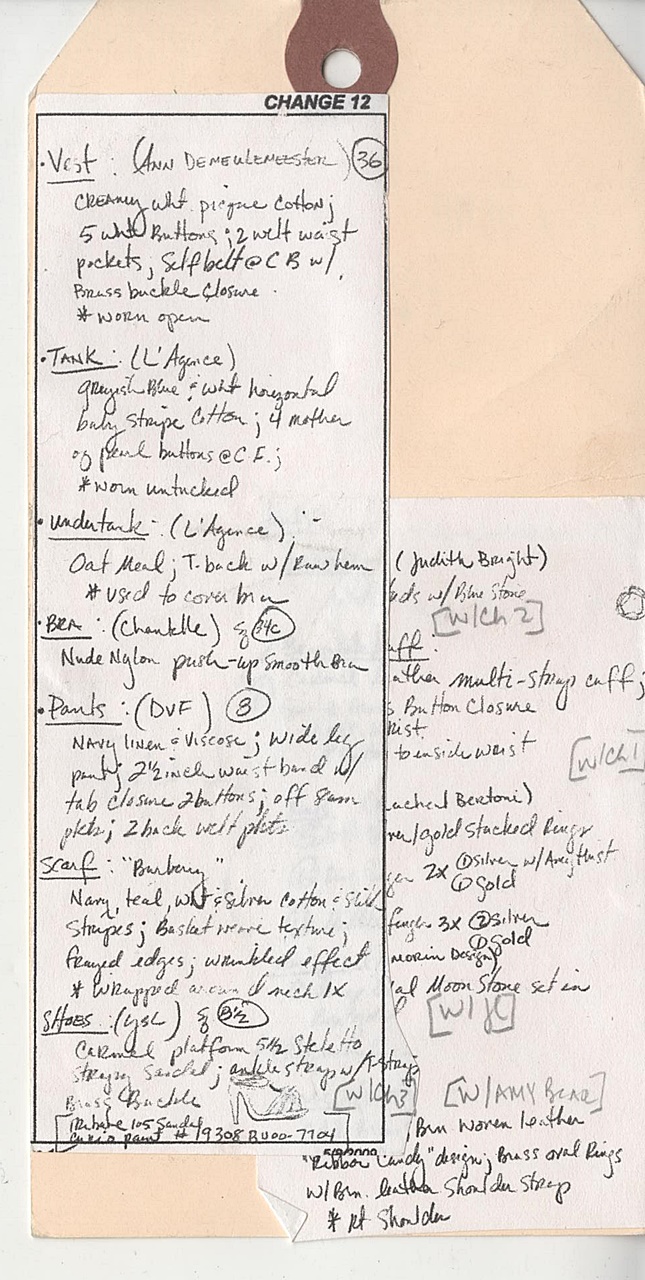 CHANGE 12
• Vest : (ANN DEMEULEMEESTER) 36
CREAMY wht. pique Cotton;
5 wht Buttons; 2 welt waist
pockets; Self belt @ CB w/
Brass buckle Closure
* worn open
• TANK : (L'Agence)
greyish Blue & wht horizontal
baby stripe Cotton; 4 mother
of pearl buttons @ C.F.;
* worn untucked
• undertank : (L'Agence)
Oat Meal; T-back w/ Raw hem
* used to cover bra
• BRA : (Chantelle) 34C
Nude Nylon push-up Smooth Bra
• Pants : (DVF) 8
NAVY linen & Viscose; wide leg
pant; 2½ inch waist band w/
tab closure 2 buttons; off seam
pkts; 2 back welt pkts
Scarf : "Burberry"
Navy, teal, wht & Silver Cotton & Silk
Stripes; Basket weave texture;
frayed edges; wrinkled effect
* wrapped around neck 1X
SHOES : (YSL) 8½
Carmel platform 5½ Steletto
Strapy Sandel; ankle strap w/ T-strap
Brass Buckle
Tribute 105 Sandal
# 19308 BU00-7704
(Judith Bright)
ads w/ Blue Stone
[W/Ch 2]
uff :
ather multi-strap cuff;
s Button Closure
rist
to inside wrist
[W/Ch 1]
achel Bertoni)
ver/gold Stacked Rings
ger 2X ① Silver w/ Amethist
① gold
finger 3X ② Silver
① gold
morin Design)
al Moon Stone set in
[W/JC]
[W/Ch 3]
[W/AMY BEAD]
Brn Woven leather
"Ribbon Candy" design; Brass oval Rings
w/ Brn. leather Shoulder Strap
* Rt Shoulder